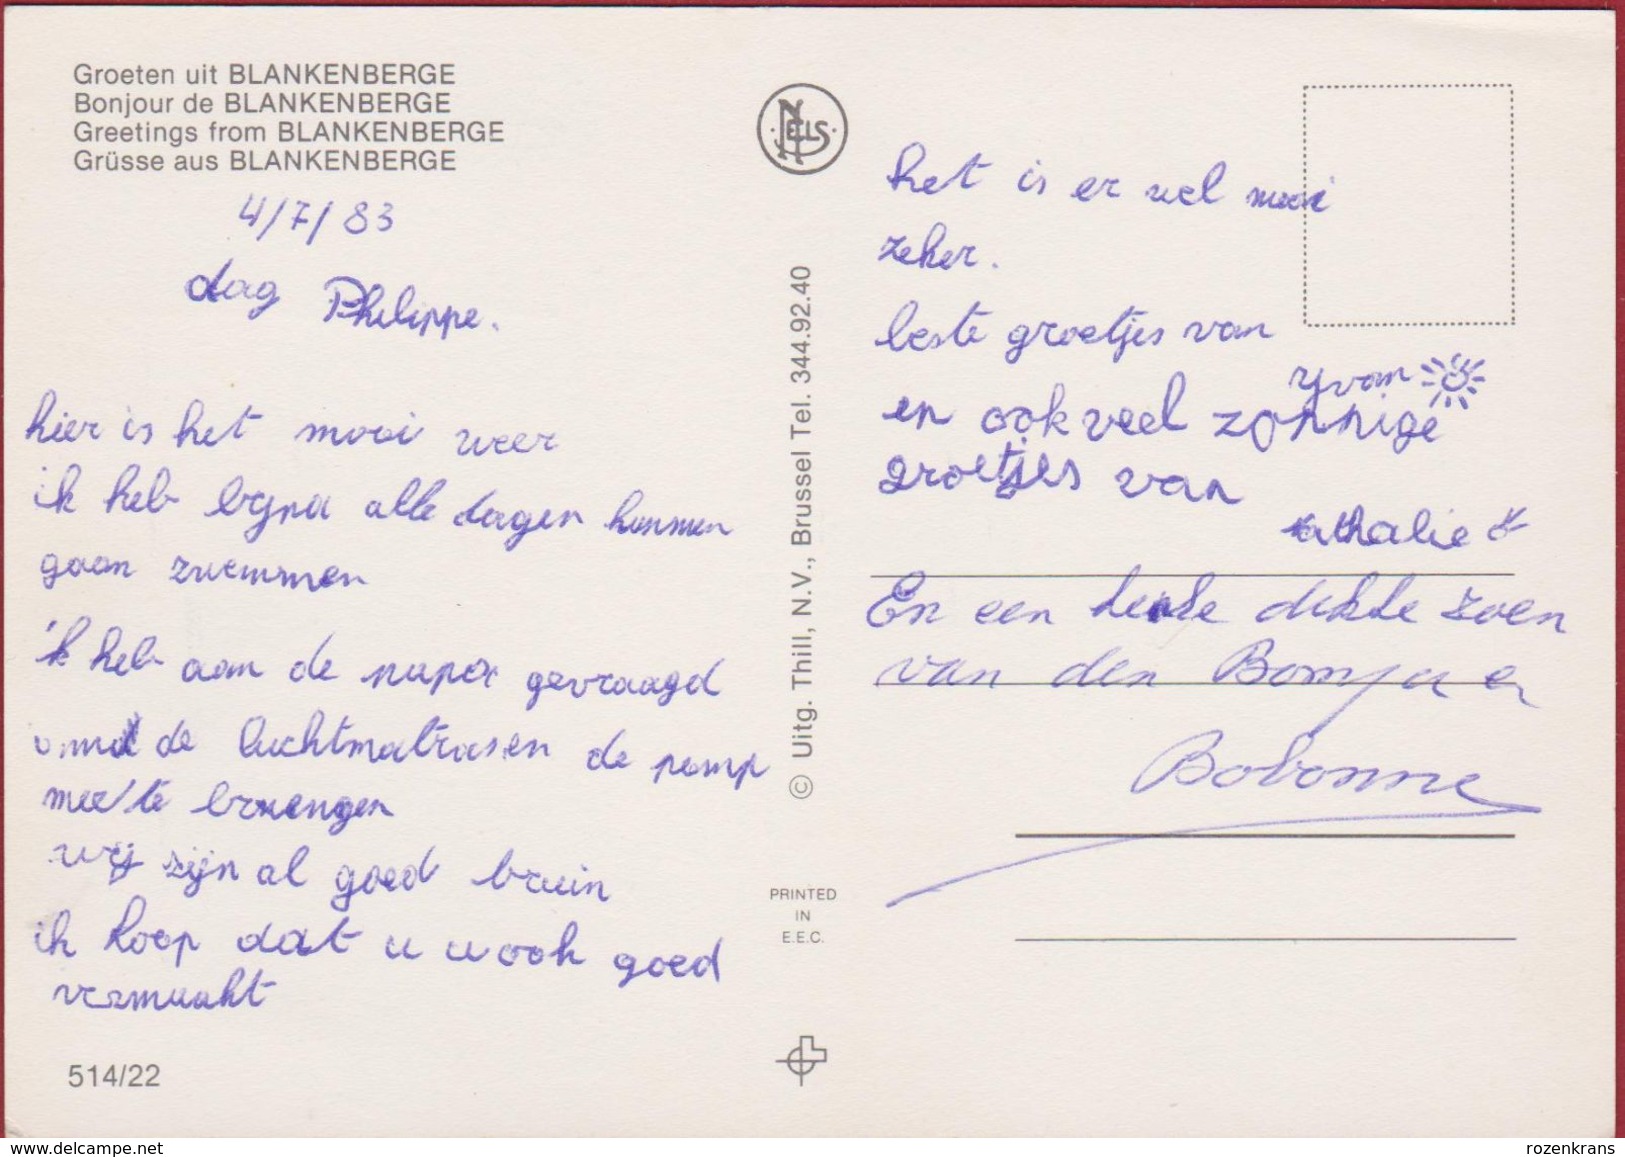 Groeten uit BLANKENBERGE
Bonjour de BLANKENBERGE
Greetings from BLANKENBERGE
Grüsse aus BLANKENBERGE
4/7/83
dag Philippe.
hier is het mooi weer
ik heb bijna alle dagen kunnen
gaan zwemmen
ik heb aan de papa gevraagd
om de luchtmatrassen de pomp
mee te brengen
wij zijn al goed bruin
ik hoop dat u u ook goed
vermaakt
514/22
NELS
© Uitg. Thill, N.V., Brussel Tel. 344.92.40
PRINTED
IN
E.E.C.
het is er wel mooi
zeker.
beste groetjes van
Yvan
en ook veel zonnige
groetjes van
nathalie
En een dikke zoen
van den Bompa en
Bobonne
rozenkrans
delcampe.net